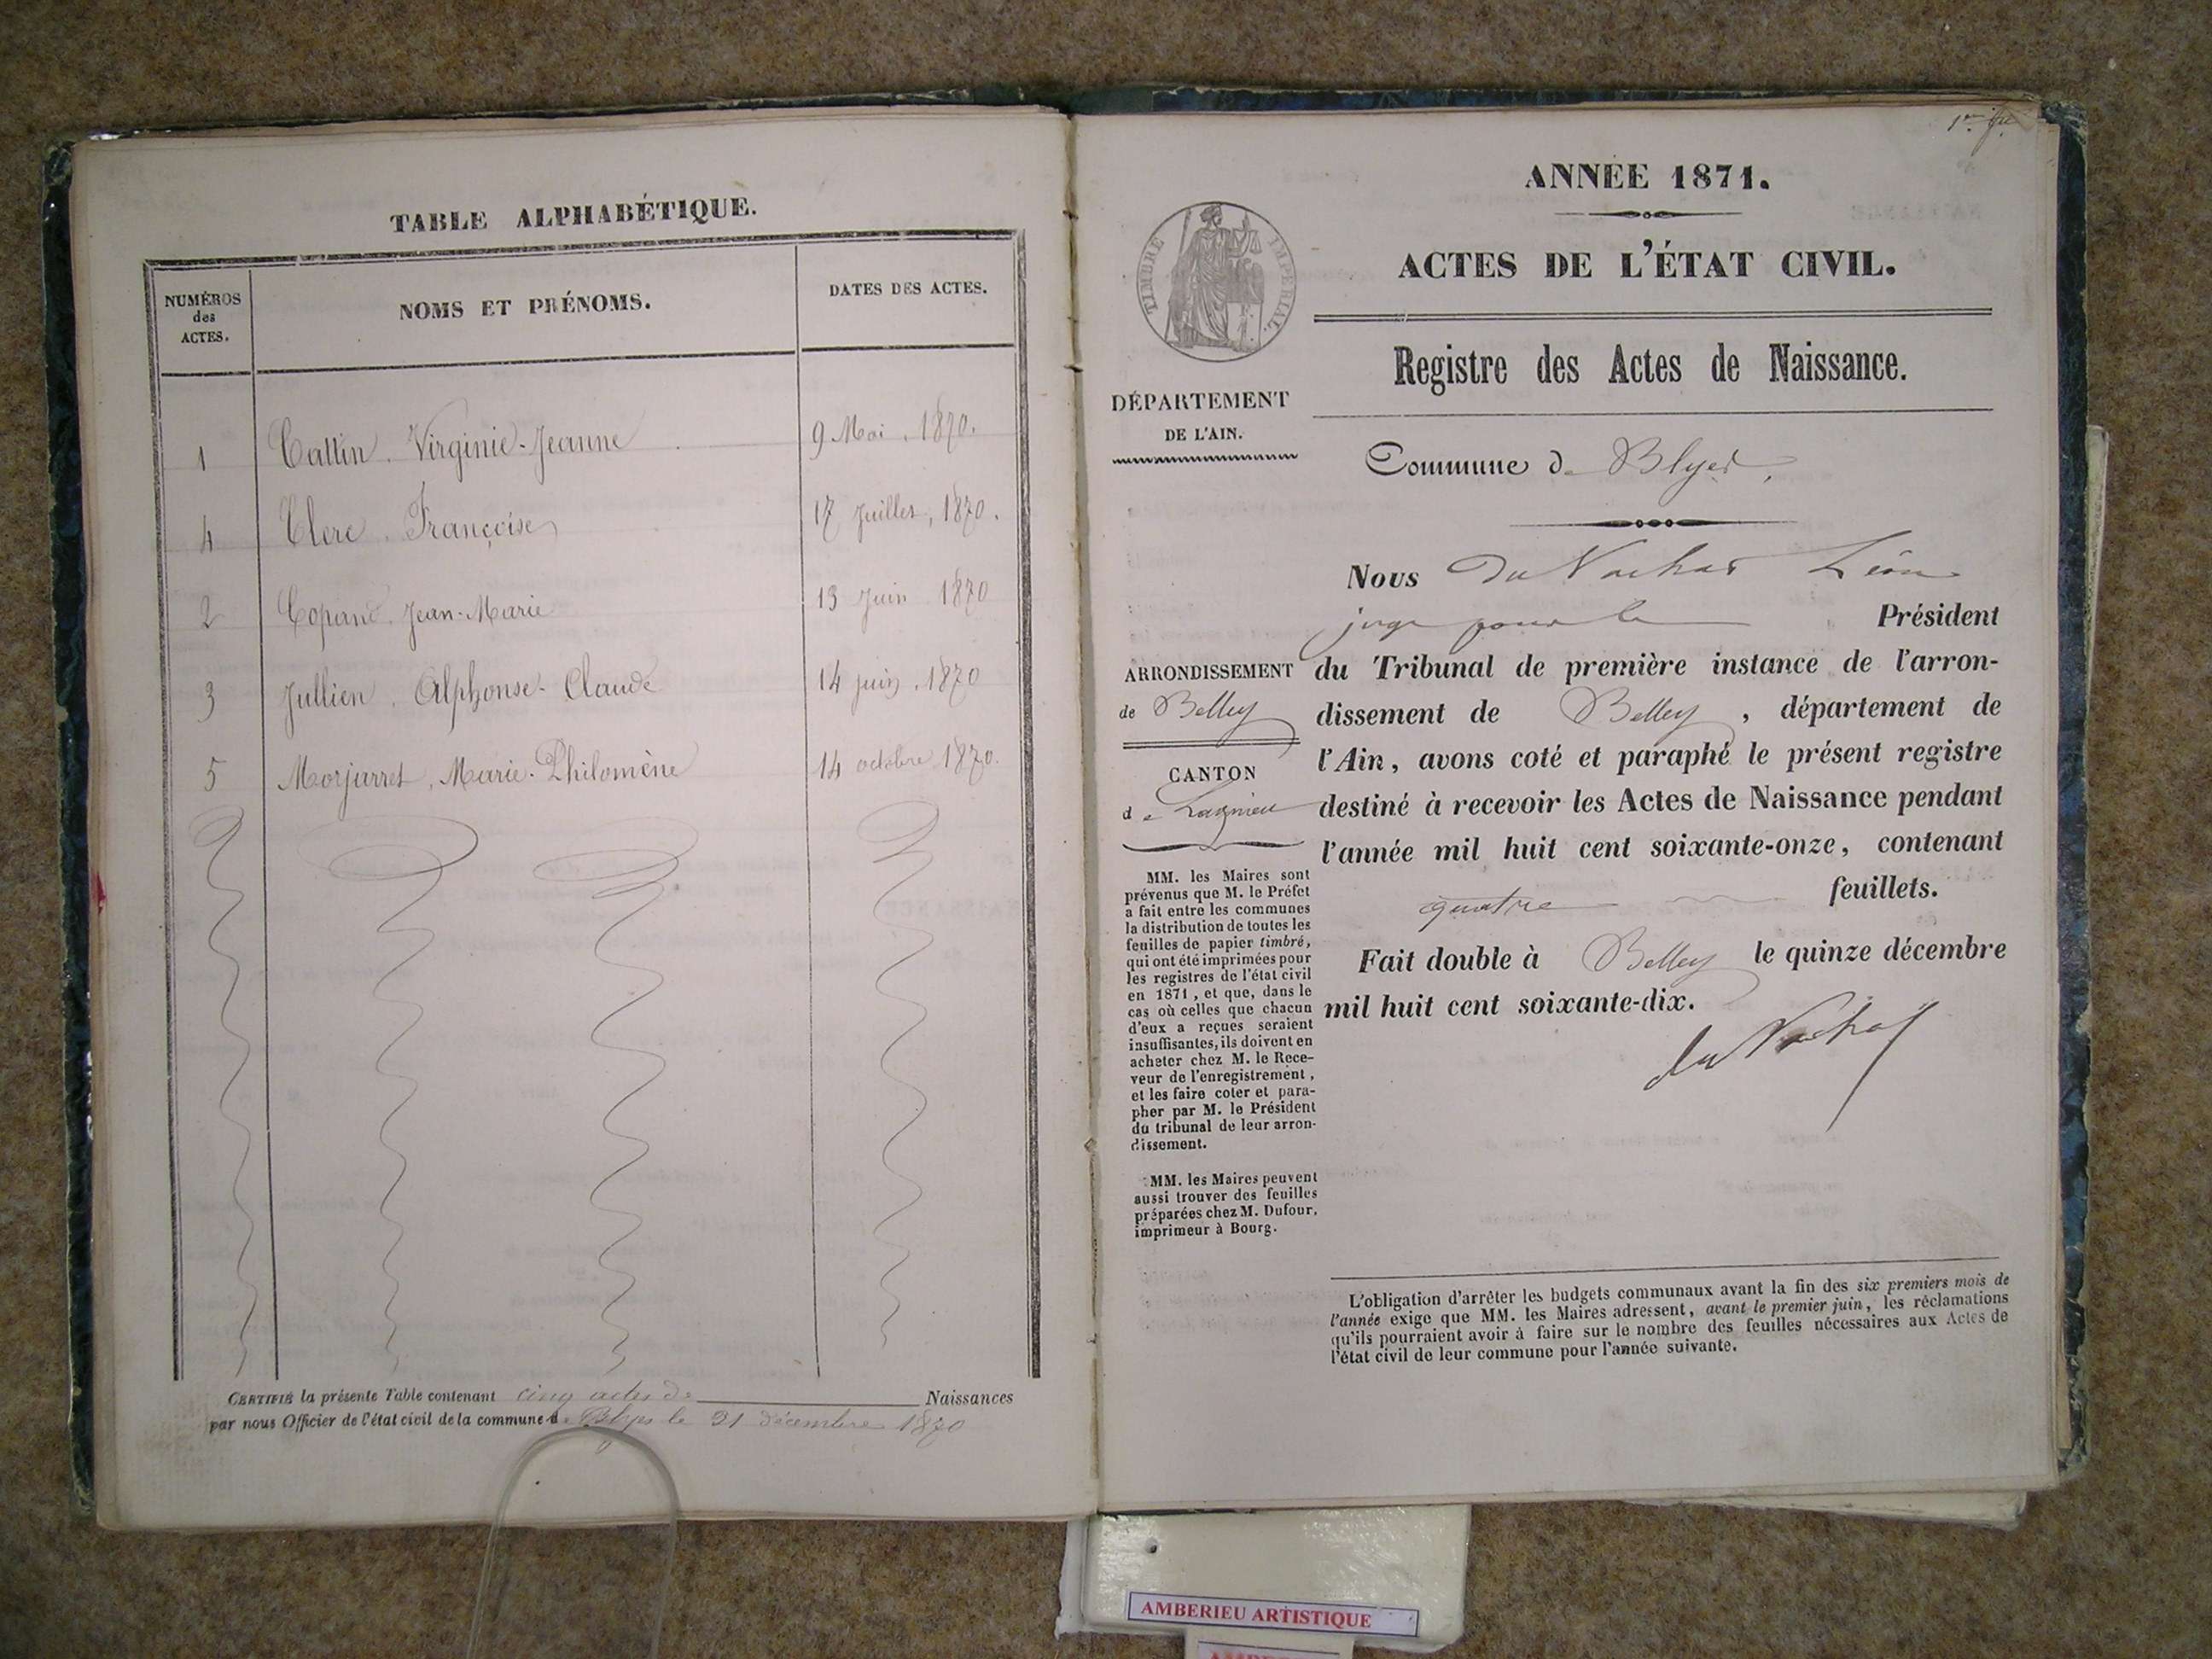 TABLE ALPHABÉTIQUE.
NUMÉROS
des
ACTES.
NOMS ET PRÉNOMS.
DATES DES ACTES.
1 Cattin. Virginie-Jeanne 9 Mai. 1870.
4 Clerc. Françoise 17 Juillet, 1870.
2 Jean-Marie 13 Juin 1870
3 Jullien. Alphonse-Claude 14 juin. 1870
5 Morjarret, Marie-Philomène 14 octobre 1870.
CERTIFIÉ la présente Table contenant cinq actes de Naissances
par nous Officier de l'état civil de la commune de Blyes le 31 décembre 1870
ANNÉE 1871.
ACTES DE L'ÉTAT CIVIL.
TIMBRE IMPÉRIAL.
Registre des Actes de Naissance.
DÉPARTEMENT
DE L'AIN.
Commune de Blyes,
ARRONDISSEMENT
de Belley
CANTON
de Lagnieu
MM. les Maires sont
prévenus que M. le Préfet
a fait entre les communes
la distribution de toutes les
feuilles de papier timbré,
qui ont été imprimées pour
les registres de l'état civil
en 1871, et que, dans le
cas où celles que chacun
d'eux a reçues seraient
insuffisantes, ils doivent en
acheter chez M. le Rece-
veur de l'enregistrement,
et les faire coter et para-
pher par M. le Président
du tribunal de leur arron-
dissement.
MM. les Maires peuvent
aussi trouver des feuilles
préparées chez M. Dufour,
imprimeur à Bourg.
Nous Du Vachat Léon
juge pour le Président
du Tribunal de première instance de l'arron-
dissement de Belley, département de
l'Ain, avons coté et paraphé le présent registre
destiné à recevoir les Actes de Naissance pendant
l'année mil huit cent soixante-onze, contenant
quatre feuillets.
Fait double à Belley le quinze décembre
mil huit cent soixante-dix.
du Vachat
L'obligation d'arrêter les budgets communaux avant la fin des six premiers mois de
l'année exige que MM. les Maires adressent, avant le premier juin, les réclamations
qu'ils pourraient avoir à faire sur le nombre des feuilles nécessaires aux Actes de
l'état civil de leur commune pour l'année suivante.
AMBERIEU ARTISTIQUE